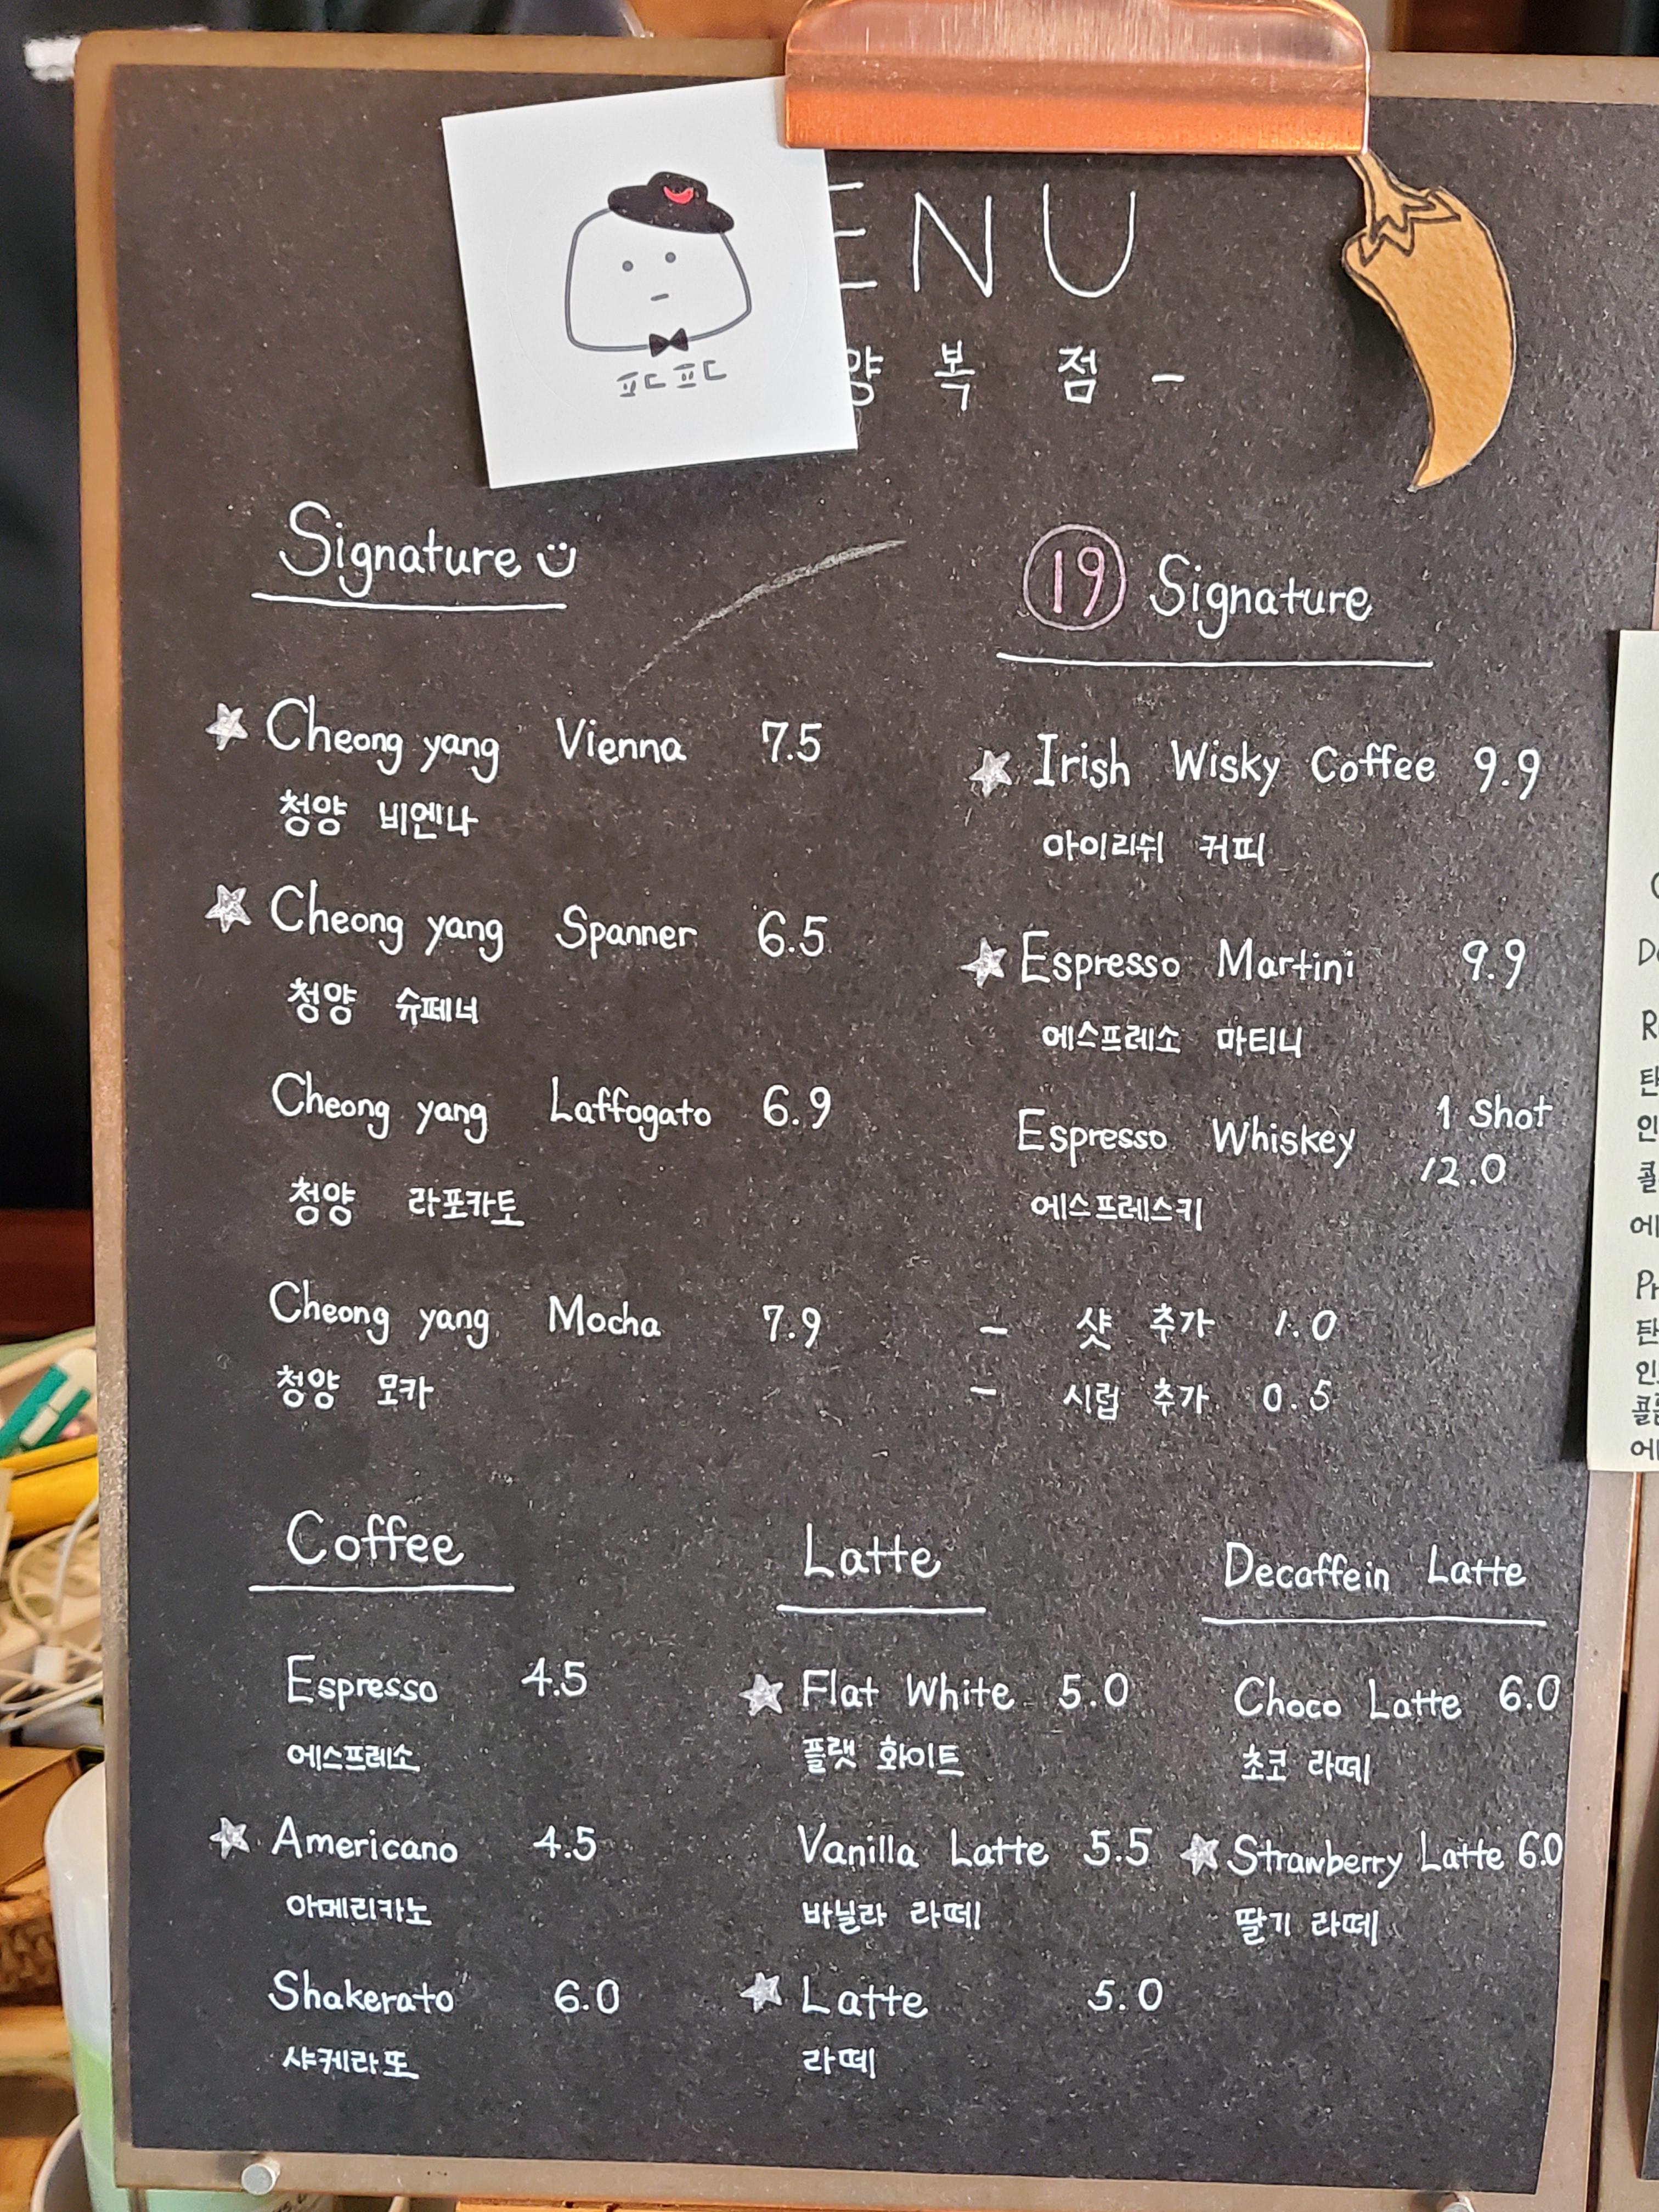 ENU
복 점 -
Signature
Cheong yang Vienna 7.5
청양 비엔나
Cheong yang Spanner 6.5
청양 슈페너
Cheong yang Laffogato 6.9
청양 라포카토
Cheong yang Mocha 7.9
청양 모카
19 Signature
Irish Wisky Coffee 9.9
아이리쉬 커피
Espresso Martini 9.9
에스프레소 마티니
Espresso Whiskey 1 Shot
12.0
에스프레스키
- 샷 추가 1.0
- 시럽 추가 0.5
Coffee
Espresso 4.5
에스프레소
Americano 4.5
아메리카노
Shakerato 6.0
샤케라또
Latte
Flat White 5.0
플랫 화이트
Vanilla Latte 5.5
바닐라 라떼
Latte 5.0
라떼
Decaffein Latte
Choco Latte 6.0
초코 라떼
Strawberry Latte 6.0
딸기 라떼